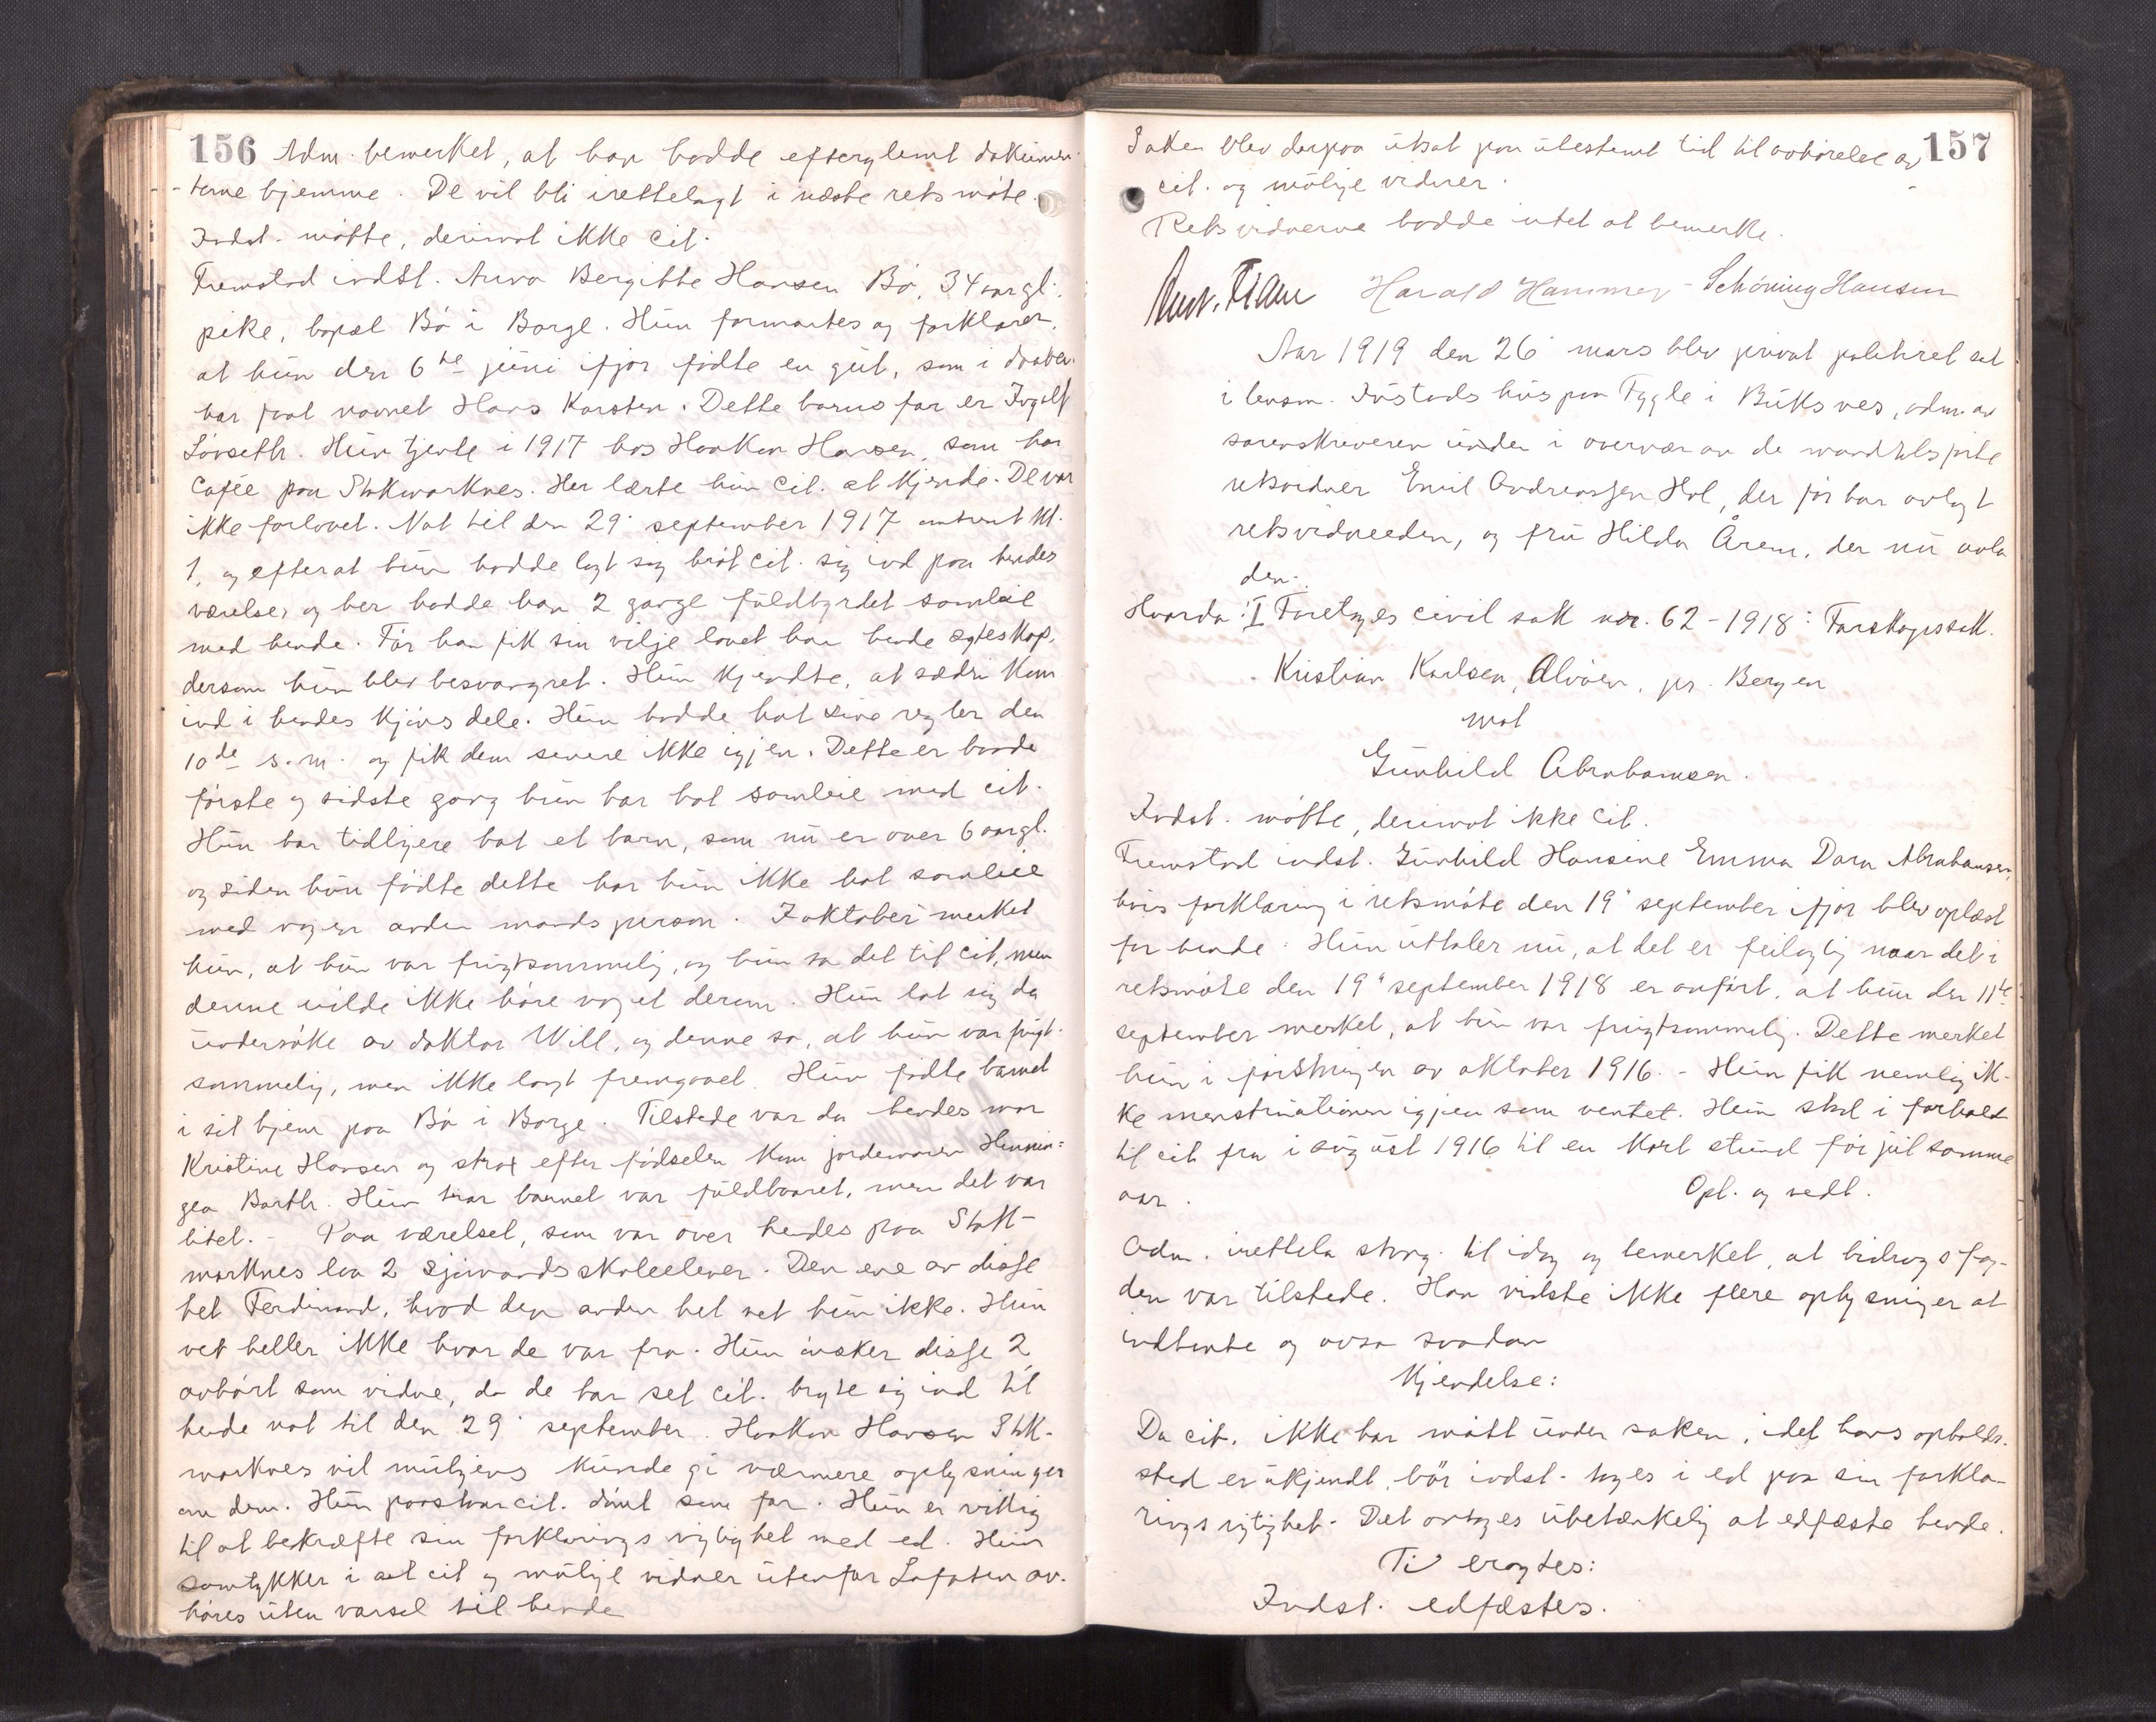 156 Adm. bemerket, at han hadde efterglemt dokumen-
terne hjemme. De vil bli irettelagt i næste retsmøte.
Indst. møtte, derimot ikke cit.
Fremstod indst. Anna Bergitte Hansen Bø, 34 aar gl.
pike, bopæl Bø i Borge. Hun formantes og forklarer,
at hun den 6te juni ifjor fødte en gut, som i daaben
har faat navnet Hans Karsten. Dette barns far er Ingolf
Lønseth. Hun tjente i 1917 hos Haakon Hansen, som har
Cafée paa Stokmarknes. Her lærte hun cit. at kjende. De var
ikke forlovet. Nat til den 29. september 1917 omtrent kl.
1, og efterat hun hadde lagt sig brøt cit. sig ind paa hendes
værelse, og her hadde han 2 gange fuldbyrdet samleie
med hende. Før han fik sin vilje lovet han hende egteskap,
dersom hun blev besvangret. Hun kjendte, at sæden kom
ind i hendes kjønsdele. Hun hadde hat sine regler den
10de s.m. og fik dem senere ikke igjen. Dette er baade
første og sidste gang hun har hat samleie med cit.
Hun har tidligere hat et barn, som nu er over 6 aar gl.
og siden hun fødte dette har hun ikke hat samleie
med nogen anden mandsperson. I oktober merket
hun, at hun var frugtsommelig, og hun sa det til cit, men
denne vilde ikke høre noget derom. Hun lot sig da
undersøke av doktor Will, og denne sa, at hun var frugt-
sommelig, men ikke langt fremgaaet. Hun fødte barnet
i sit hjem paa Bø i Borge. Tilstede var da hendes mor
Kristine Hansen og strax efter fødselen kom jordemoren Hennin=
gea Barth. Hun sa barnet var fuldbaaret, men det var
litet. - Paa værelset, som var over hendes paa Stok-
marknes laa 2 sjømandsskoleelever. Den ene av disse
het Ferdinand, hvad den anden het vet hun ikke. Hun
vet heller ikke hvor de var fra. Hun ønsker disse 2
avhørt som vidne, da de har set cit. bryte sig ind til
hende nat til den 29. september. Haakon Hansen Stok-
marknes vil muligens kunde gi nærmere oplysninger
om dem. Hun paastaar cit. dømt som far. Hun er villig
til at bekræfte sin forklarings rigtighet med ed. Hun
samtykker i at cit og mulige vidner utenfor Lofoten av-
høres uten varsel til hende
157
Saken blev derpaa utsat paa ubestemt tid til avhørelse av
cit. og mulige vidner.
Retsvidnerne hadde intet at bemerke.
Harald Hammer Schøning Hansen
Aar 1919 den 26. mars blev privat politiret sat
i lensm. Justads hus paa Fygle i Buksnes, adm. av
sorenskriveren under i overvær av de mandtalsførte
retsvidner Emil Andreassen Hol, der før har avlagt
retsvidneeden, og fru Hilda Årem, der nu avla
den.
Hvorda: I Foretoges civil sak nr. 62 - 1918: Farskapssak.
Kristian Karlsen, Alvøen, pr. Bergen
mot
Gunhild Abrahamsen.
Indst. møtte, derimot ikke cit.
Fremstod indst. Gunhild Hansine Emma Dara Abrahamsen,
hvis forklaring i retsmøte den 19. september ifjor blev oplæst
for hende: Hun uttaler nu, at det er feilagtig naar det i
retsmøte den 19. september 1918 er anført, at hun den 11te
september merket, at hun var frugtsommelig. Dette merket
hun i førstningen av oktober 1916. - Hun fik nemlig ik-
ke menstruationen igjen som ventet. Hun stod i forhold
til cit fra i august 1916 til en kort stund før jul samme
aar. Opl. og vedt.
Adm. irettela stevn. til idag og bemerket, at bidragsfog-
den var tilstede. Han vidste ikke flere oplysninger at
indhente og avsa saadan
Kjendelse:
Da cit. ikke har møtt under saken, idet hans opholds-
sted er ukjendt, bør indst. tages i ed paa sin forkla-
rings rigtighet. Det antages ubetænkelig at edfæste hende.
Ti eragtes:
Indst. edfæstes.